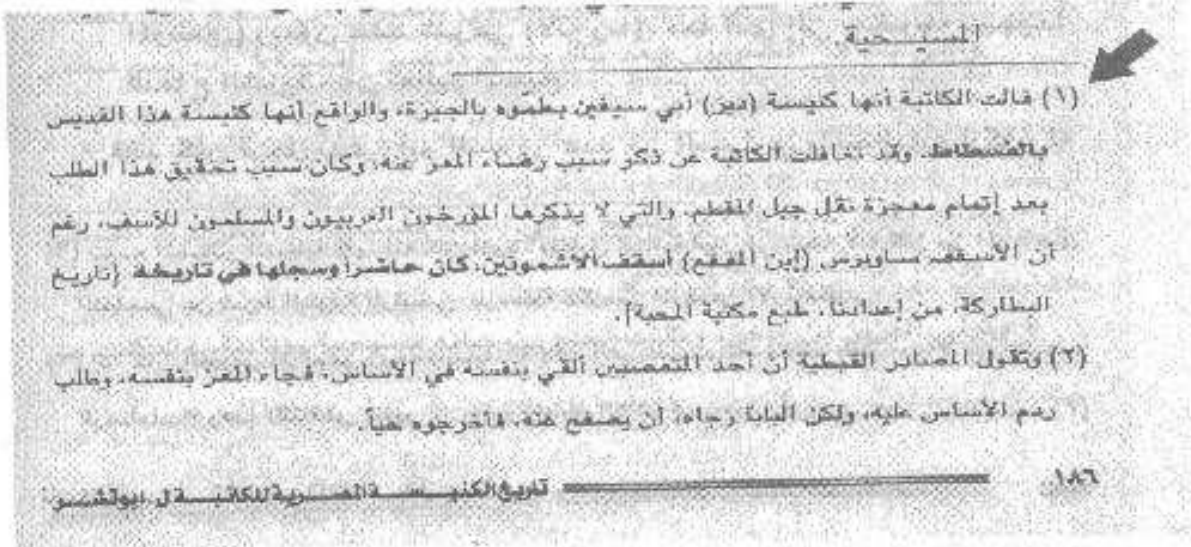 المسيـحية.
(١) قالت الكاتبة أنها كنيسة (دير) أبي سيفين بطمّوه بالجيزة، والواقع أنها كنيسة هذا القديس
بالفسطاط. وقد تغافلت الكاتبة عن ذكر سبب رضاء المعز عنه، وكان سبب تحقيق هذا الطلب
بعد إتمام معجزة نقل جبل المقطم، والتي لا يذكرها المؤرخون الغربيون والمسلمون للأسف، رغم
أن الأسقف ساويرس (إبن المقفع) أسقف الأشمونين، كان حاضراً وسجلها في تاريخه [تاريخ
البطاركة، من إعدادنا، طبع مكتبة المحبة].
(٢) وتقول المصادر القبطية أن أحد المتعصبين ألقي بنفسه في الأساس، فجاء المعز بنفسه، وطلب
ردم الأساس عليه، ولكن البابا رجاه، أن يصفح عنه، فأخرجوه حياً.
١٨٦ تاريخ الكنيسة المصرية للكاتبة ل. بوتشر